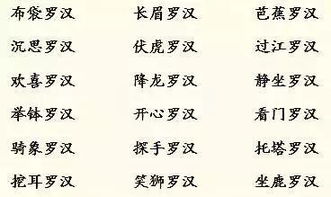 布袋罗汉 长眉罗汉 芭蕉罗汉
沉思罗汉 伏虎罗汉 过江罗汉
欢喜罗汉 降龙罗汉 静坐罗汉
举钵罗汉 开心罗汉 看门罗汉
骑象罗汉 探手罗汉 托塔罗汉
挖耳罗汉 笑狮罗汉 坐鹿罗汉